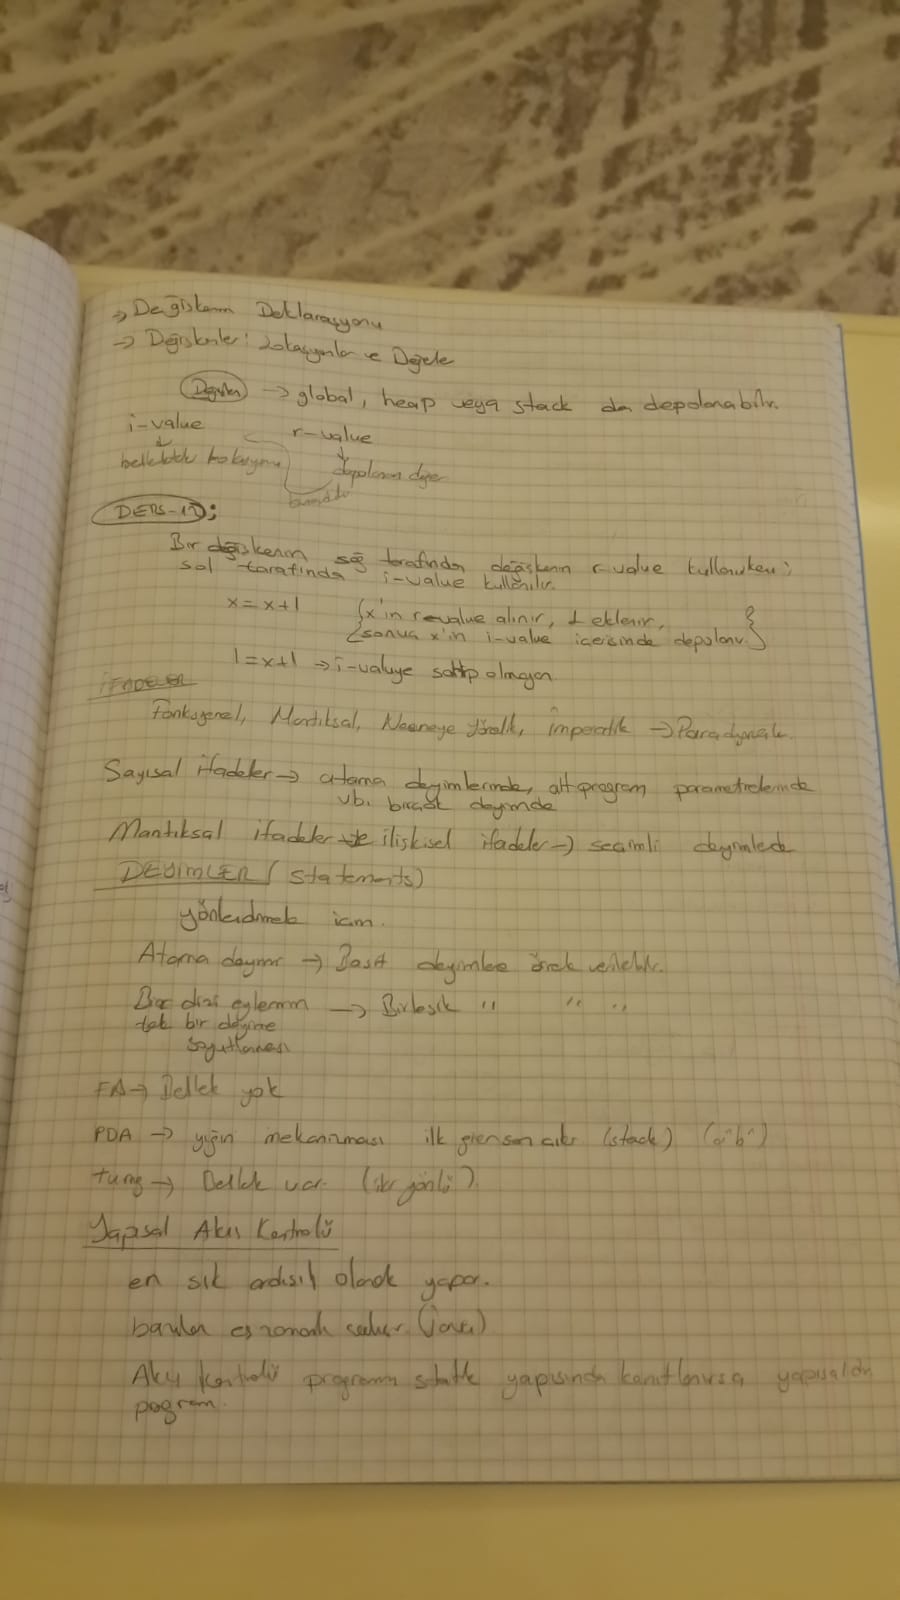 → Değişkenin Deklarasyonu
→ Değişkenler: Lokasyonlar ve Değerler
→ global, heap veya stack da depolanabilir.
i-value
r-value
bellekteki lokasyonu
depolanan değer
DERS-12;
Bir değişkenin sağ tarafında değişkenin r-value kullanırken;
sol tarafında i-value kullanılır.
x=x+1 {x'in r-value alınır, 1 eklenir,
sonuç x'in i-value içerisinde depolanır}
1=x+1 → i-valuye sahip olmayan
İFADELER
Fonksiyonel, Mantıksal, Nesneye Yönelik, İmperatik → Paradigmalar
Sayısal ifadeler → atama deyimlerinde, alt program parametrelerinde
vb. birçok deyimde
Mantıksal ifadeler ve ilişkisel ifadeler → seçimli deyimlerde
DEYİMLER (statements)
yönlendirmek için.
Atama deyimi → Basit deyimlere örnek verilebilir.
Bir dizi eylemin → Birleşik " " "
tek bir deyime
soyutlanması
FA → Bellek yok
PDA → yığın mekanizması ilk giren son çıkar (stack) (aⁿbⁿ)
turing → Bellek var (iki yönlü).
Yapısal Akış Kontrolü
en sık ardışıl olarak yapar.
bazıları eş zamanlı (java)
Akış kontrolü programın statik yapısında kanıtlanırsa yapısaldır
program.